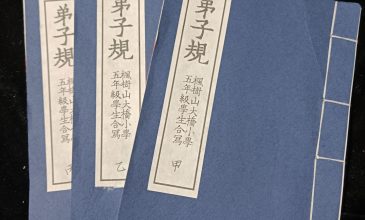 弟子規
楓樹山大橋小學
五年級學生合寫
甲
弟子規
楓樹山大橋小學
五年級學生合寫
乙
弟子規
楓樹山大橋小學
五年級學生合寫
丙